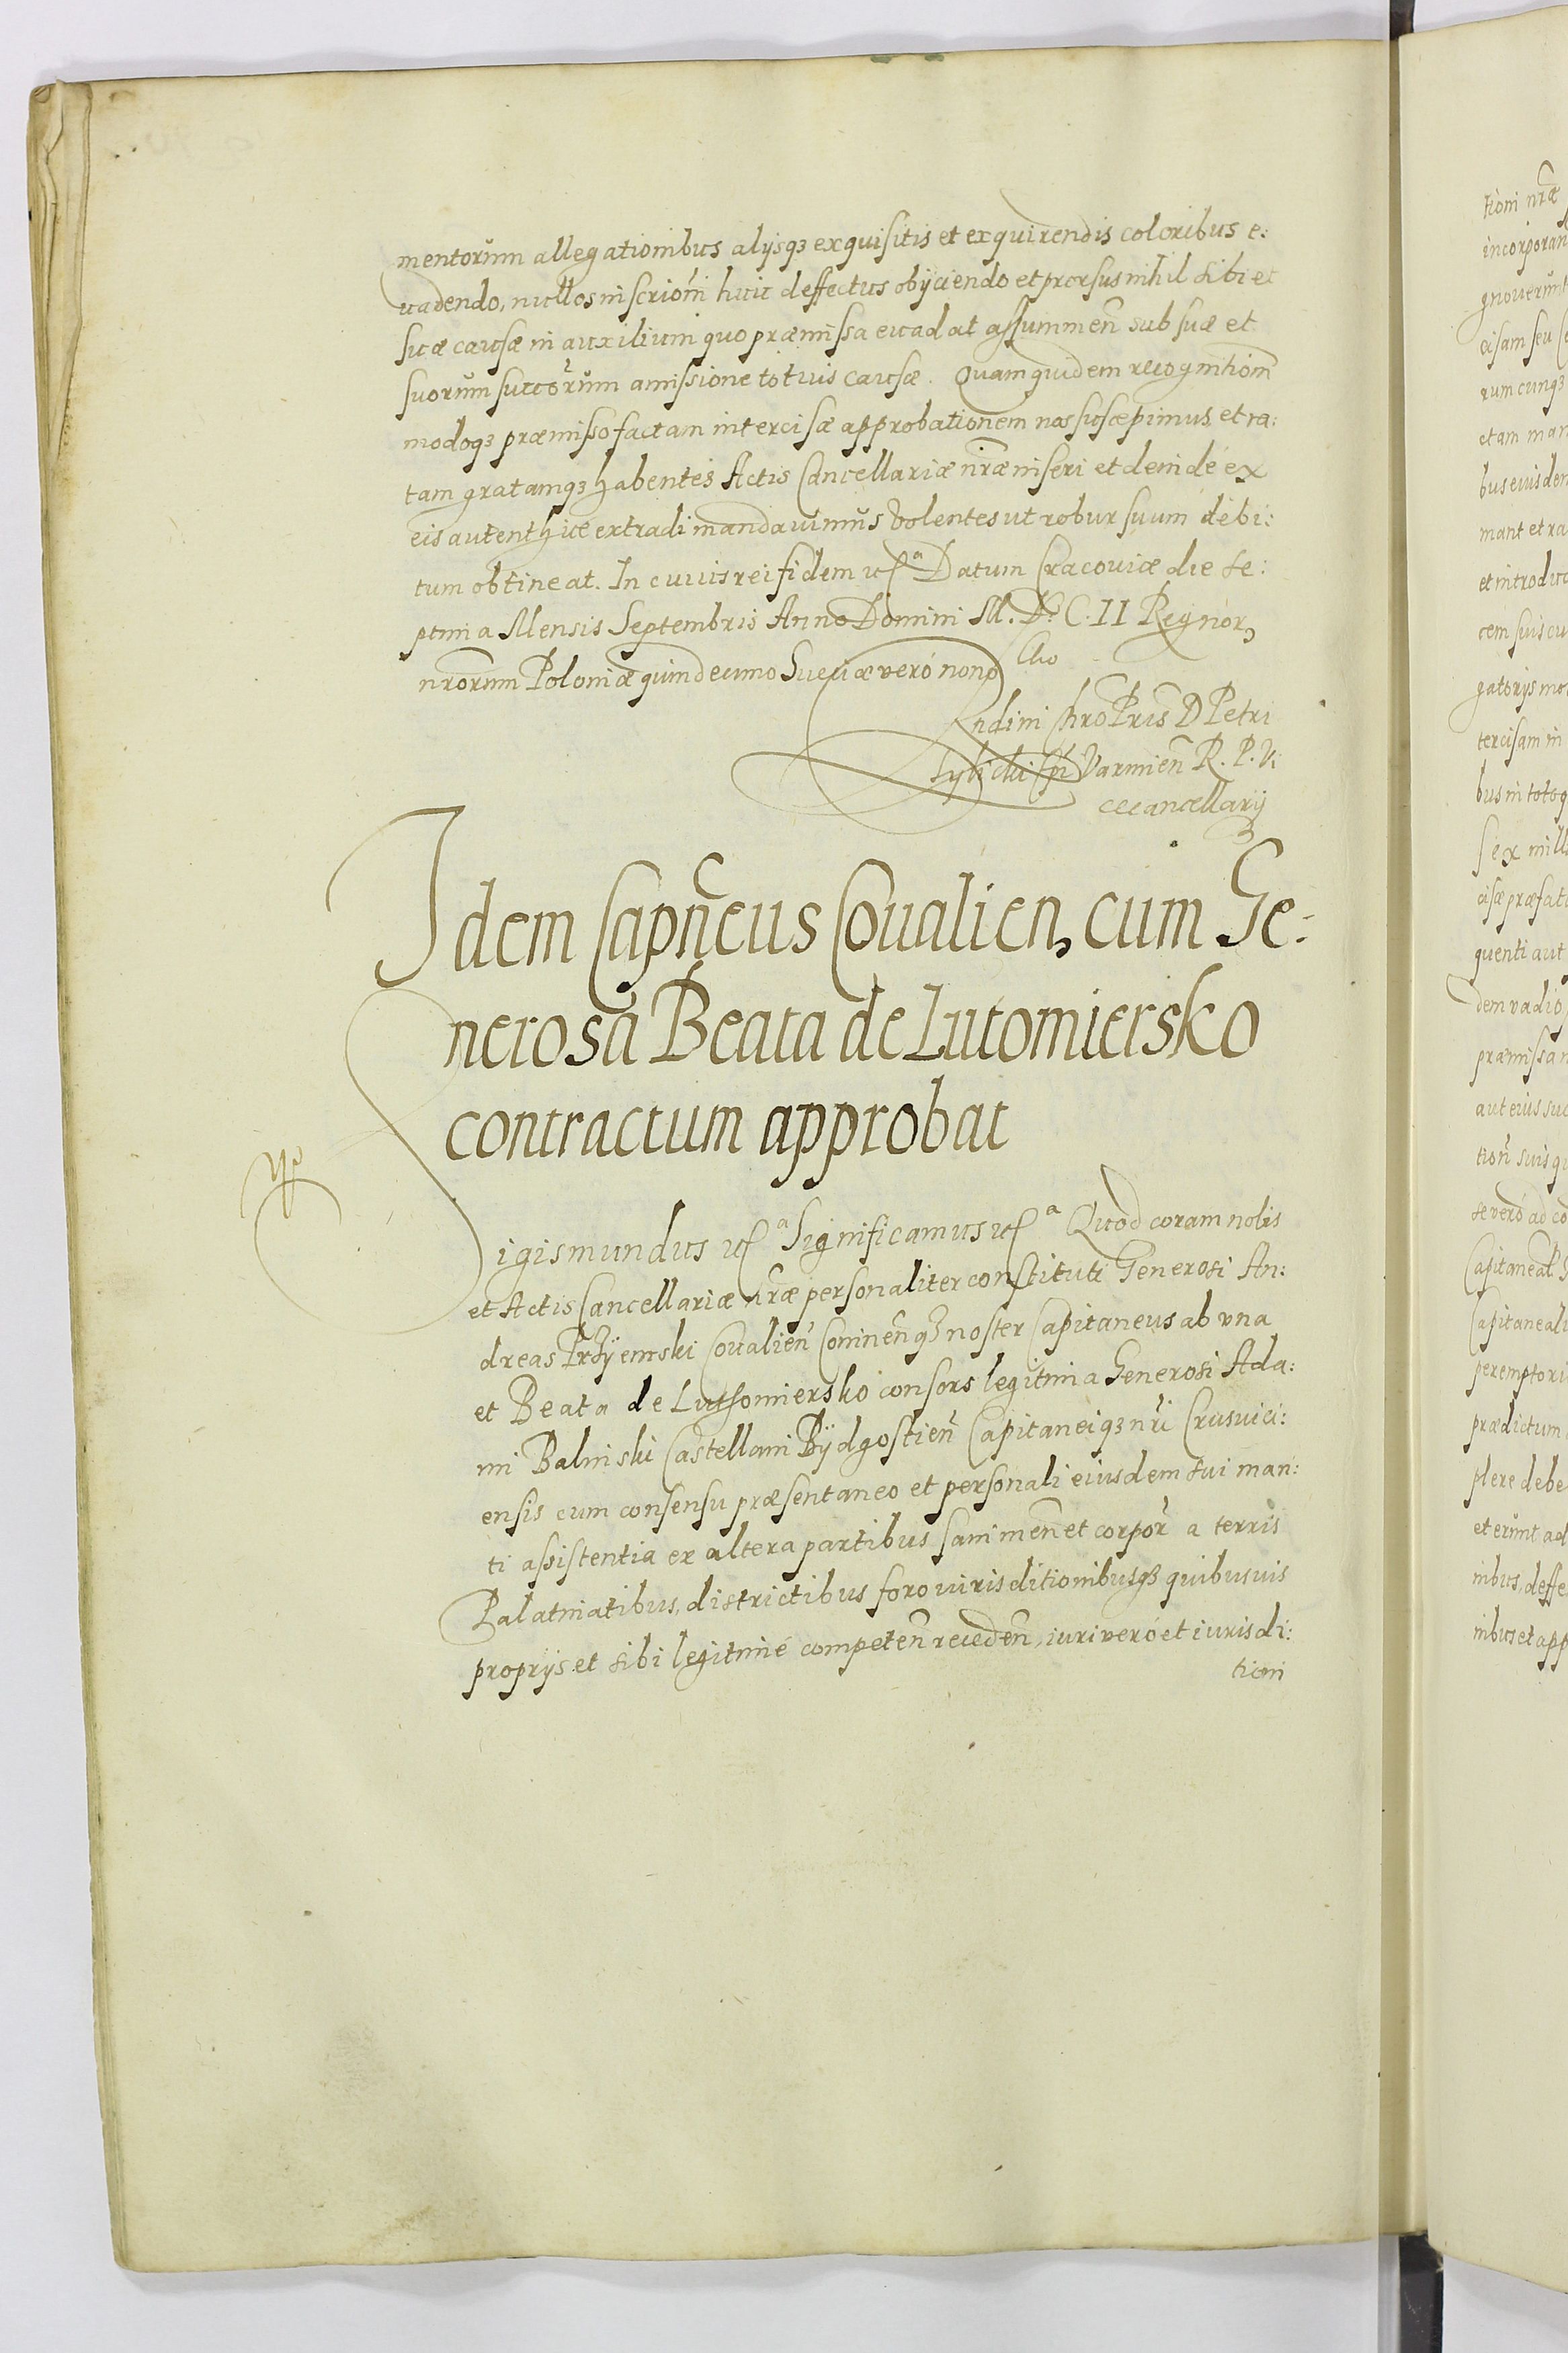 mentorum allegationibus alijsqȝ exquisitis et exquirendis coloribus e:
uadendo, nullos inscrioñi huic deffectus obijciendo et prorsus nihil sibi et
suæ causæ in auxilium quo præmissa euadat assummeñ sub suæ et
suorum succorum amissione totius causæ. Quam quidem recognitioñ
modoqȝ præmisso factam intercisæ approbationem nos suscepimus et ra:
tam gratamqȝ habentes Actis Cancellariæ nræ inseri et deindé ex
eis autenthice extradi mandauimus Volentes ut robur suum debi:
tum obtineat. In cuius rei fidem etcª Datum Cracouiæ die se:
ptima Mensis Septembris Anno Domini M. D. C. II Regnor,
nrorum Poloniæ quindecimo Sueciæ veró nono
Rndini Chro Pris D Petri
Tylicki Epi Varmieñ R. P. Vi
cecancellarij
Idem Capñeus Coualien, cum Ge:
nerosa Beata de Lutomiersko
contractum approbat
Sigismundus etcª Significamus etcª Quod coram nobis
et Actis Cancellariæ nræ personaliter constituti Generosi An:
dreas Przÿemski Coualieñ Conineñqȝ noster Capitaneus ab vna
et Beata de Luthomiersko consors legitima Generosi Ada:
mi Balinski Castellani Bÿdgostieñ Capitaneiqȝ nri Crusuici:
ensis cum consensu præsentaneo et personali eiusdem sui mari:
ti assistentia ex altera partibus sani meñ et corpor a terris
Palatinatibus, districtibus foro iurisditionibusqȝ quibusuis
proprijs et sibi legitimé competeñ recedeñ, iuri veró et iurisdi:
tioni
tioni nræ
incorporan
gnouerunt
cisam seu
rum cunqȝ
etam man
bus eiusdem
mant et ra
et introduc
cem suis cu
gatorijs mo
tercisam in
bus in totoq
sex mill
cisæ præfat
quenti aut
dem vadio
præmissa n
aut eius suc
tioñ suis qu
se veró ad co
Capitaneal
Capitaneali
peremptori
prædictum
plere debe
et erunt ad
nibus, deffe
nibus et app